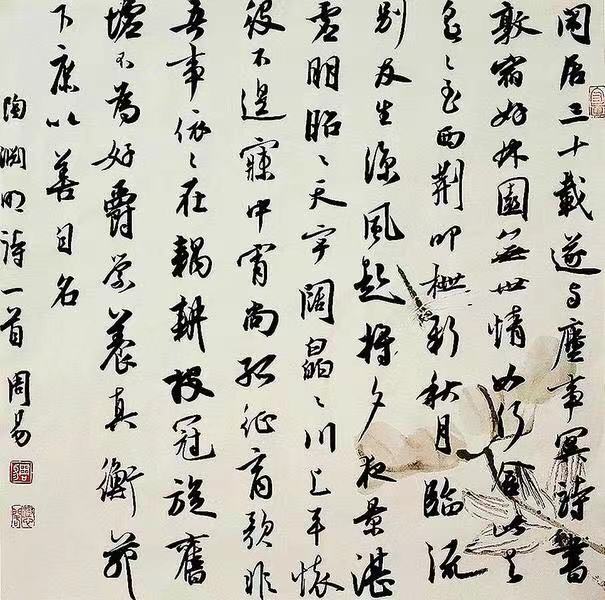 閑居三十載遂与塵事冥詩書
敦宿好林園無世情如何舍此去
遥々至西荆叩枻新秋月臨流
别友生涼風起将夕夜景湛
虚明昭々天宇闊皛々川上平懷
役不遑寐中宵尚孤征商歌非
吾事依々在耦耕投冠旋舊
墟不為好爵縈養真衡茆
下庶以善自名
陶淵明詩一首 周易